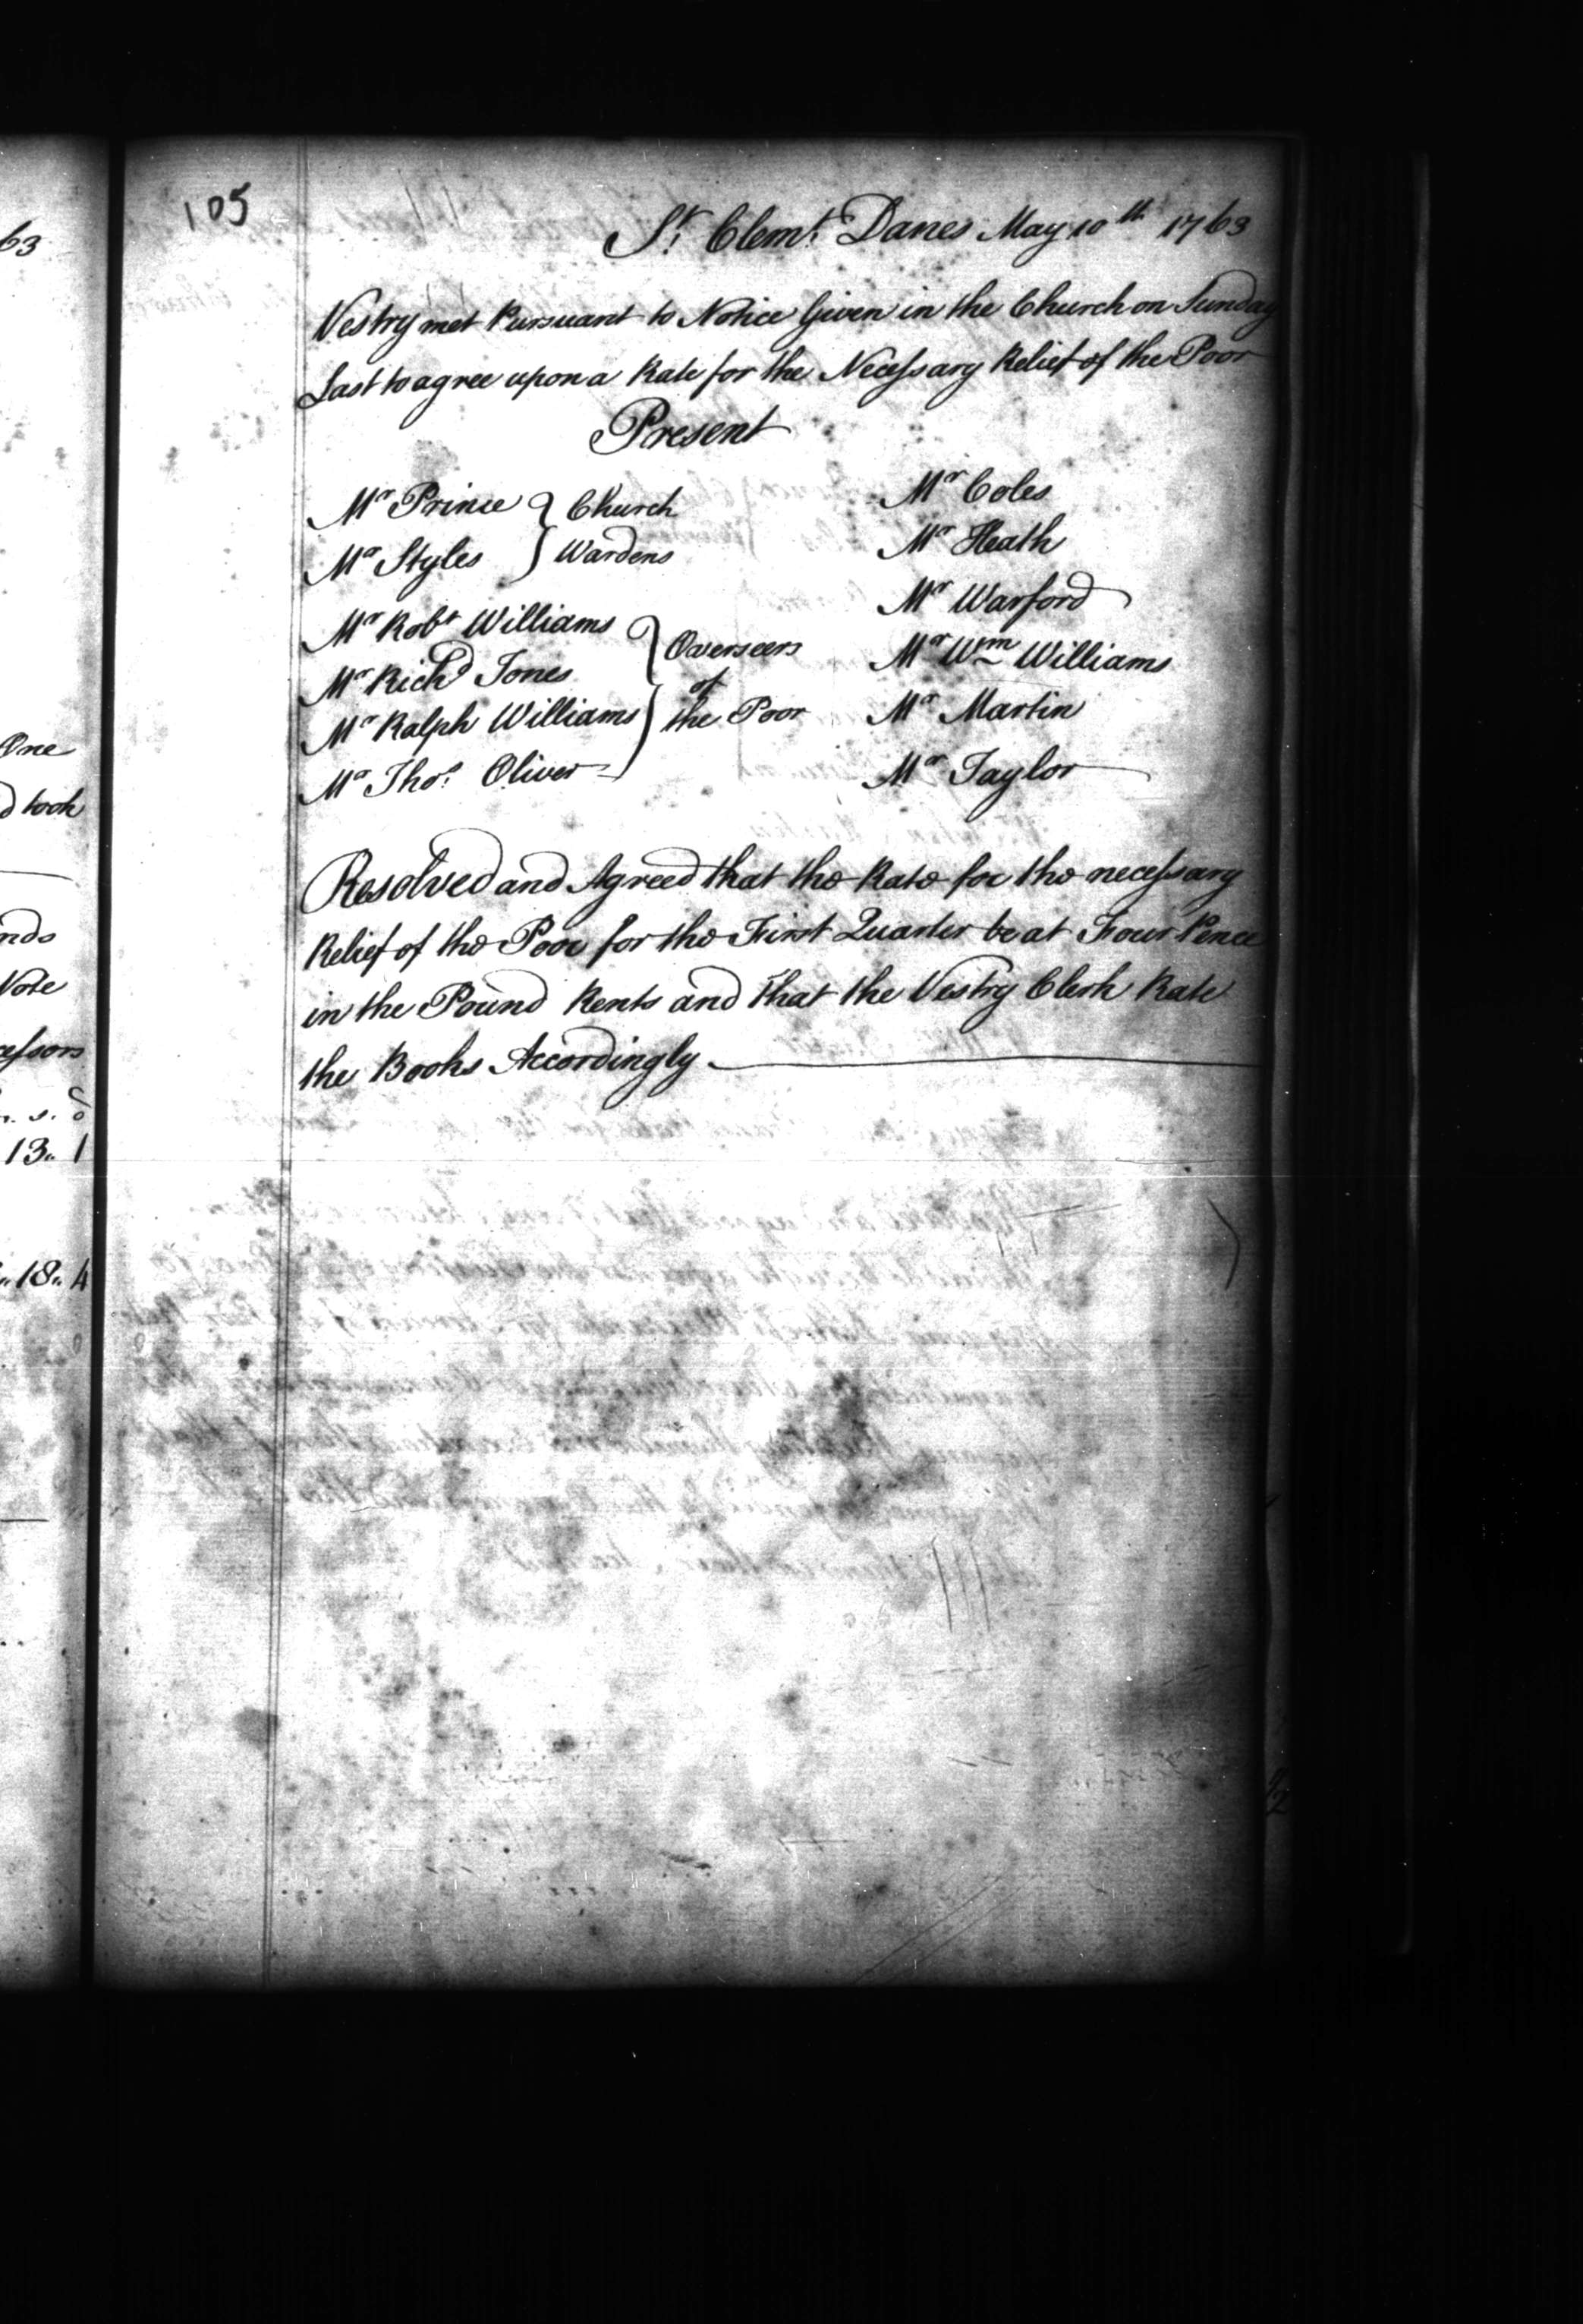 105
St. Clemt. Danes May 10th 1763
Vestry met Pursuant to Notice Given in the Church on Sunday
Last to agree upon a Rate for the Necessary Relief of the Poor
Present
Mr Prince } Church
Mr Styles } Wardens
Mr Robt Williams
Mr Richd Jones
Mr Ralph Williams
Mr Thos. Oliver
Overseers
of
the Poor
Mr Coles
Mr Heath
Mr Warford
Mr Wm Williams
Mr Martin
Mr Taylor
Resolved and Agreed that the Rate for the necessary
Relief of the Poor for the First Quarter be at Four Pence
in the Pound Rents and that the Vestry Clerk Rate
the Books Accordingly
63
One
d took
nds
Vote
cessors
s. d
13. 1
18. 4